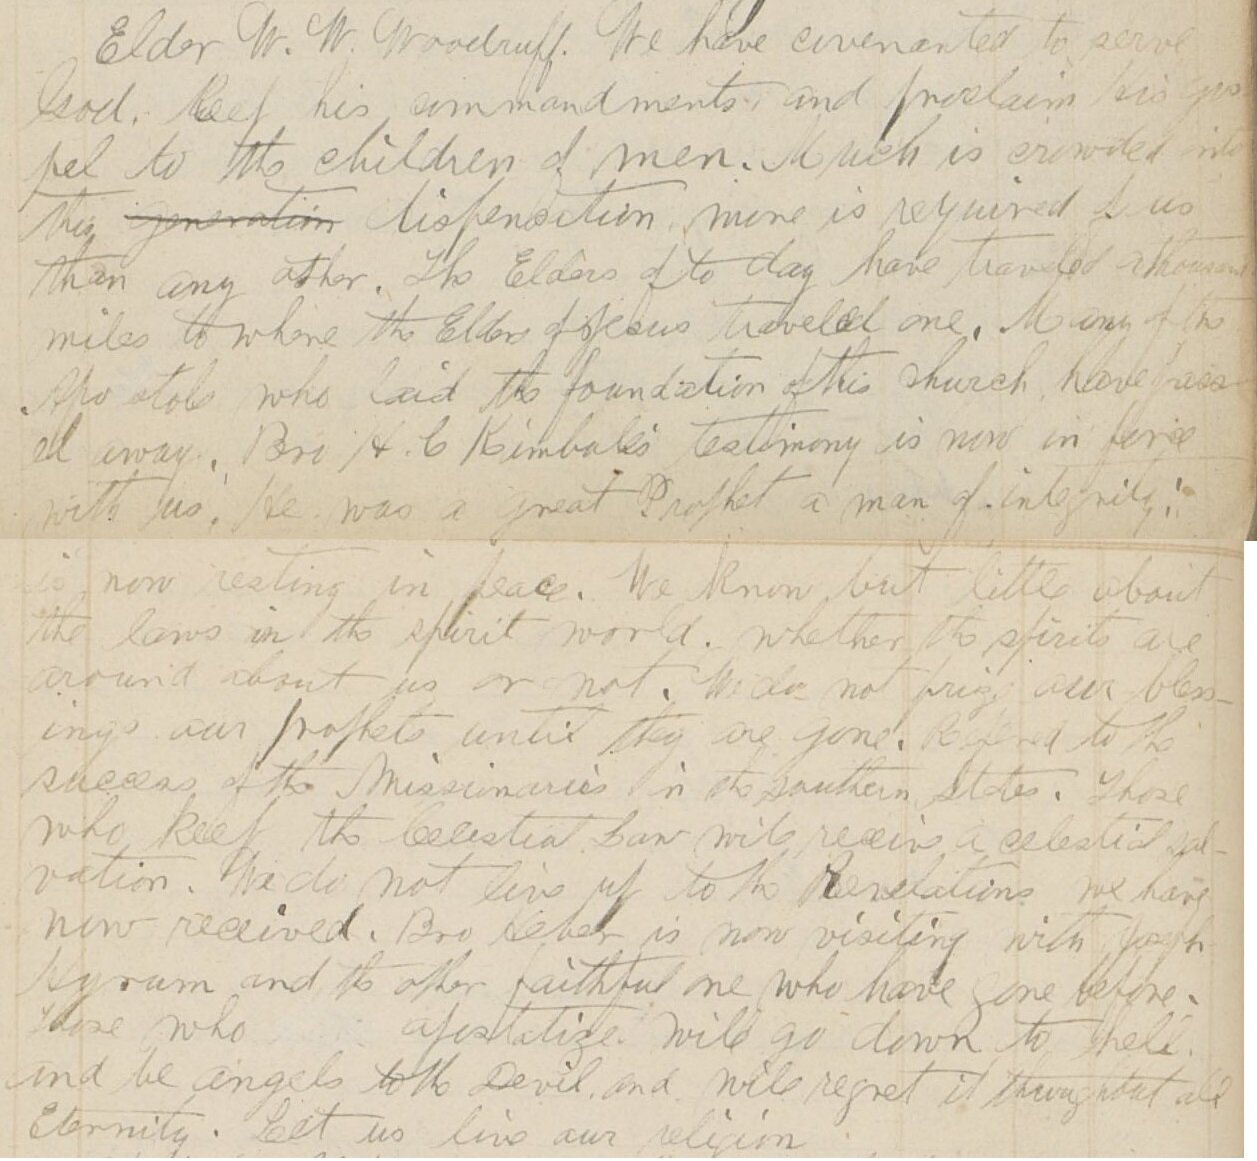 Elder W. W. Woodruff. We have covenanted to serve
God. Keep his commandments, and proclaim His gos
pel to the children of men. Much is crowded into
this generation dispensation, more is required of us
than any other. The Elders of to day have traveled a thousand
miles to where the Elders of Jesus traveled one. Many of the
Apostols who laid the foundation of this church have pass
ed away. Bro H. C Kimball's testimony is now in force
with us. He was a great Prophet a man of integrity:
is now resting in peace. We know but little about
the laws in the spirit world. whether the spirits are
around about us or not. We do not prize our bless-
ings our prophets until they are gone. Refered to the
success of the Missionaries in the southern States. Those
who keep the Celestial Law will receive a celestial sal-
vation. We do not live up to the Revelations we have
now received. Bro Heber is now visiting with Joseph
Hyrum and the other faithful one who have gone before.
Those who apostatize will go down to hell.
and be angels to the Devil. and will regret it throughout all
Eternity. Let us live our religion